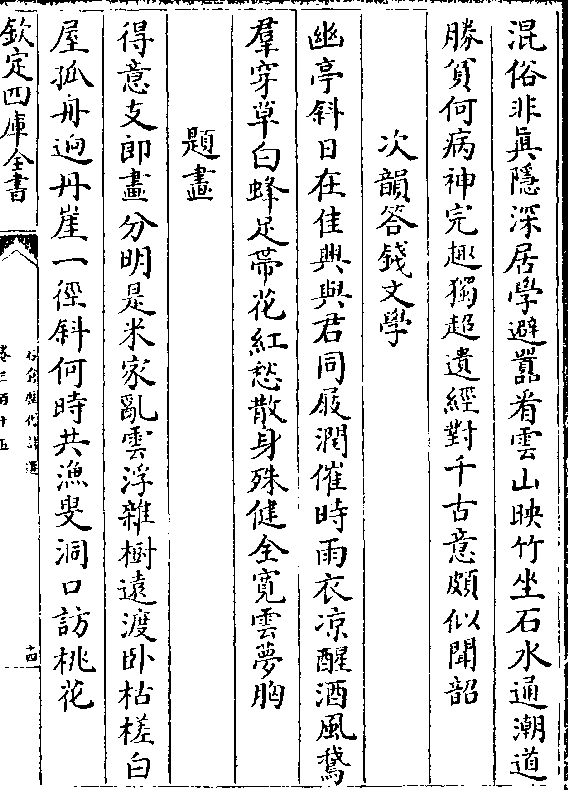 混俗非眞隠深居學避囂看雲山映竹坐石水通潮道
勝貧何病神完趣獨超遺經對千古意頗似聞韶
次韻答錢文學
幽亭斜日在佳興與君同屐潤催時雨衣凉醒酒風鵞
羣穿草白蜂足帶花紅愁散身殊健全寛雲夢胸
題畫
得意支郎畫分明是米家亂雲浮雜樹遠渡卧枯槎白
屋孤舟逈丹崖一徑斜何時共漁叟洞口訪桃花
欽定四庫全書
卷三百十五
十四